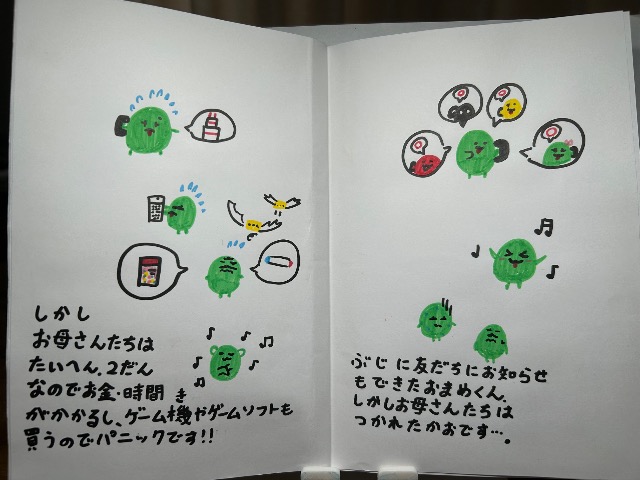 しかし
お母さんたちは
たいへん。2だん
なのでお金・時間き
がかかるし、ゲーム機やゲームソフトも
買うのでパニックです!!
ぶじに友だちにお知らせ
もできたおまめくん。
しかしお母さんたちは
つかれたかおです…。